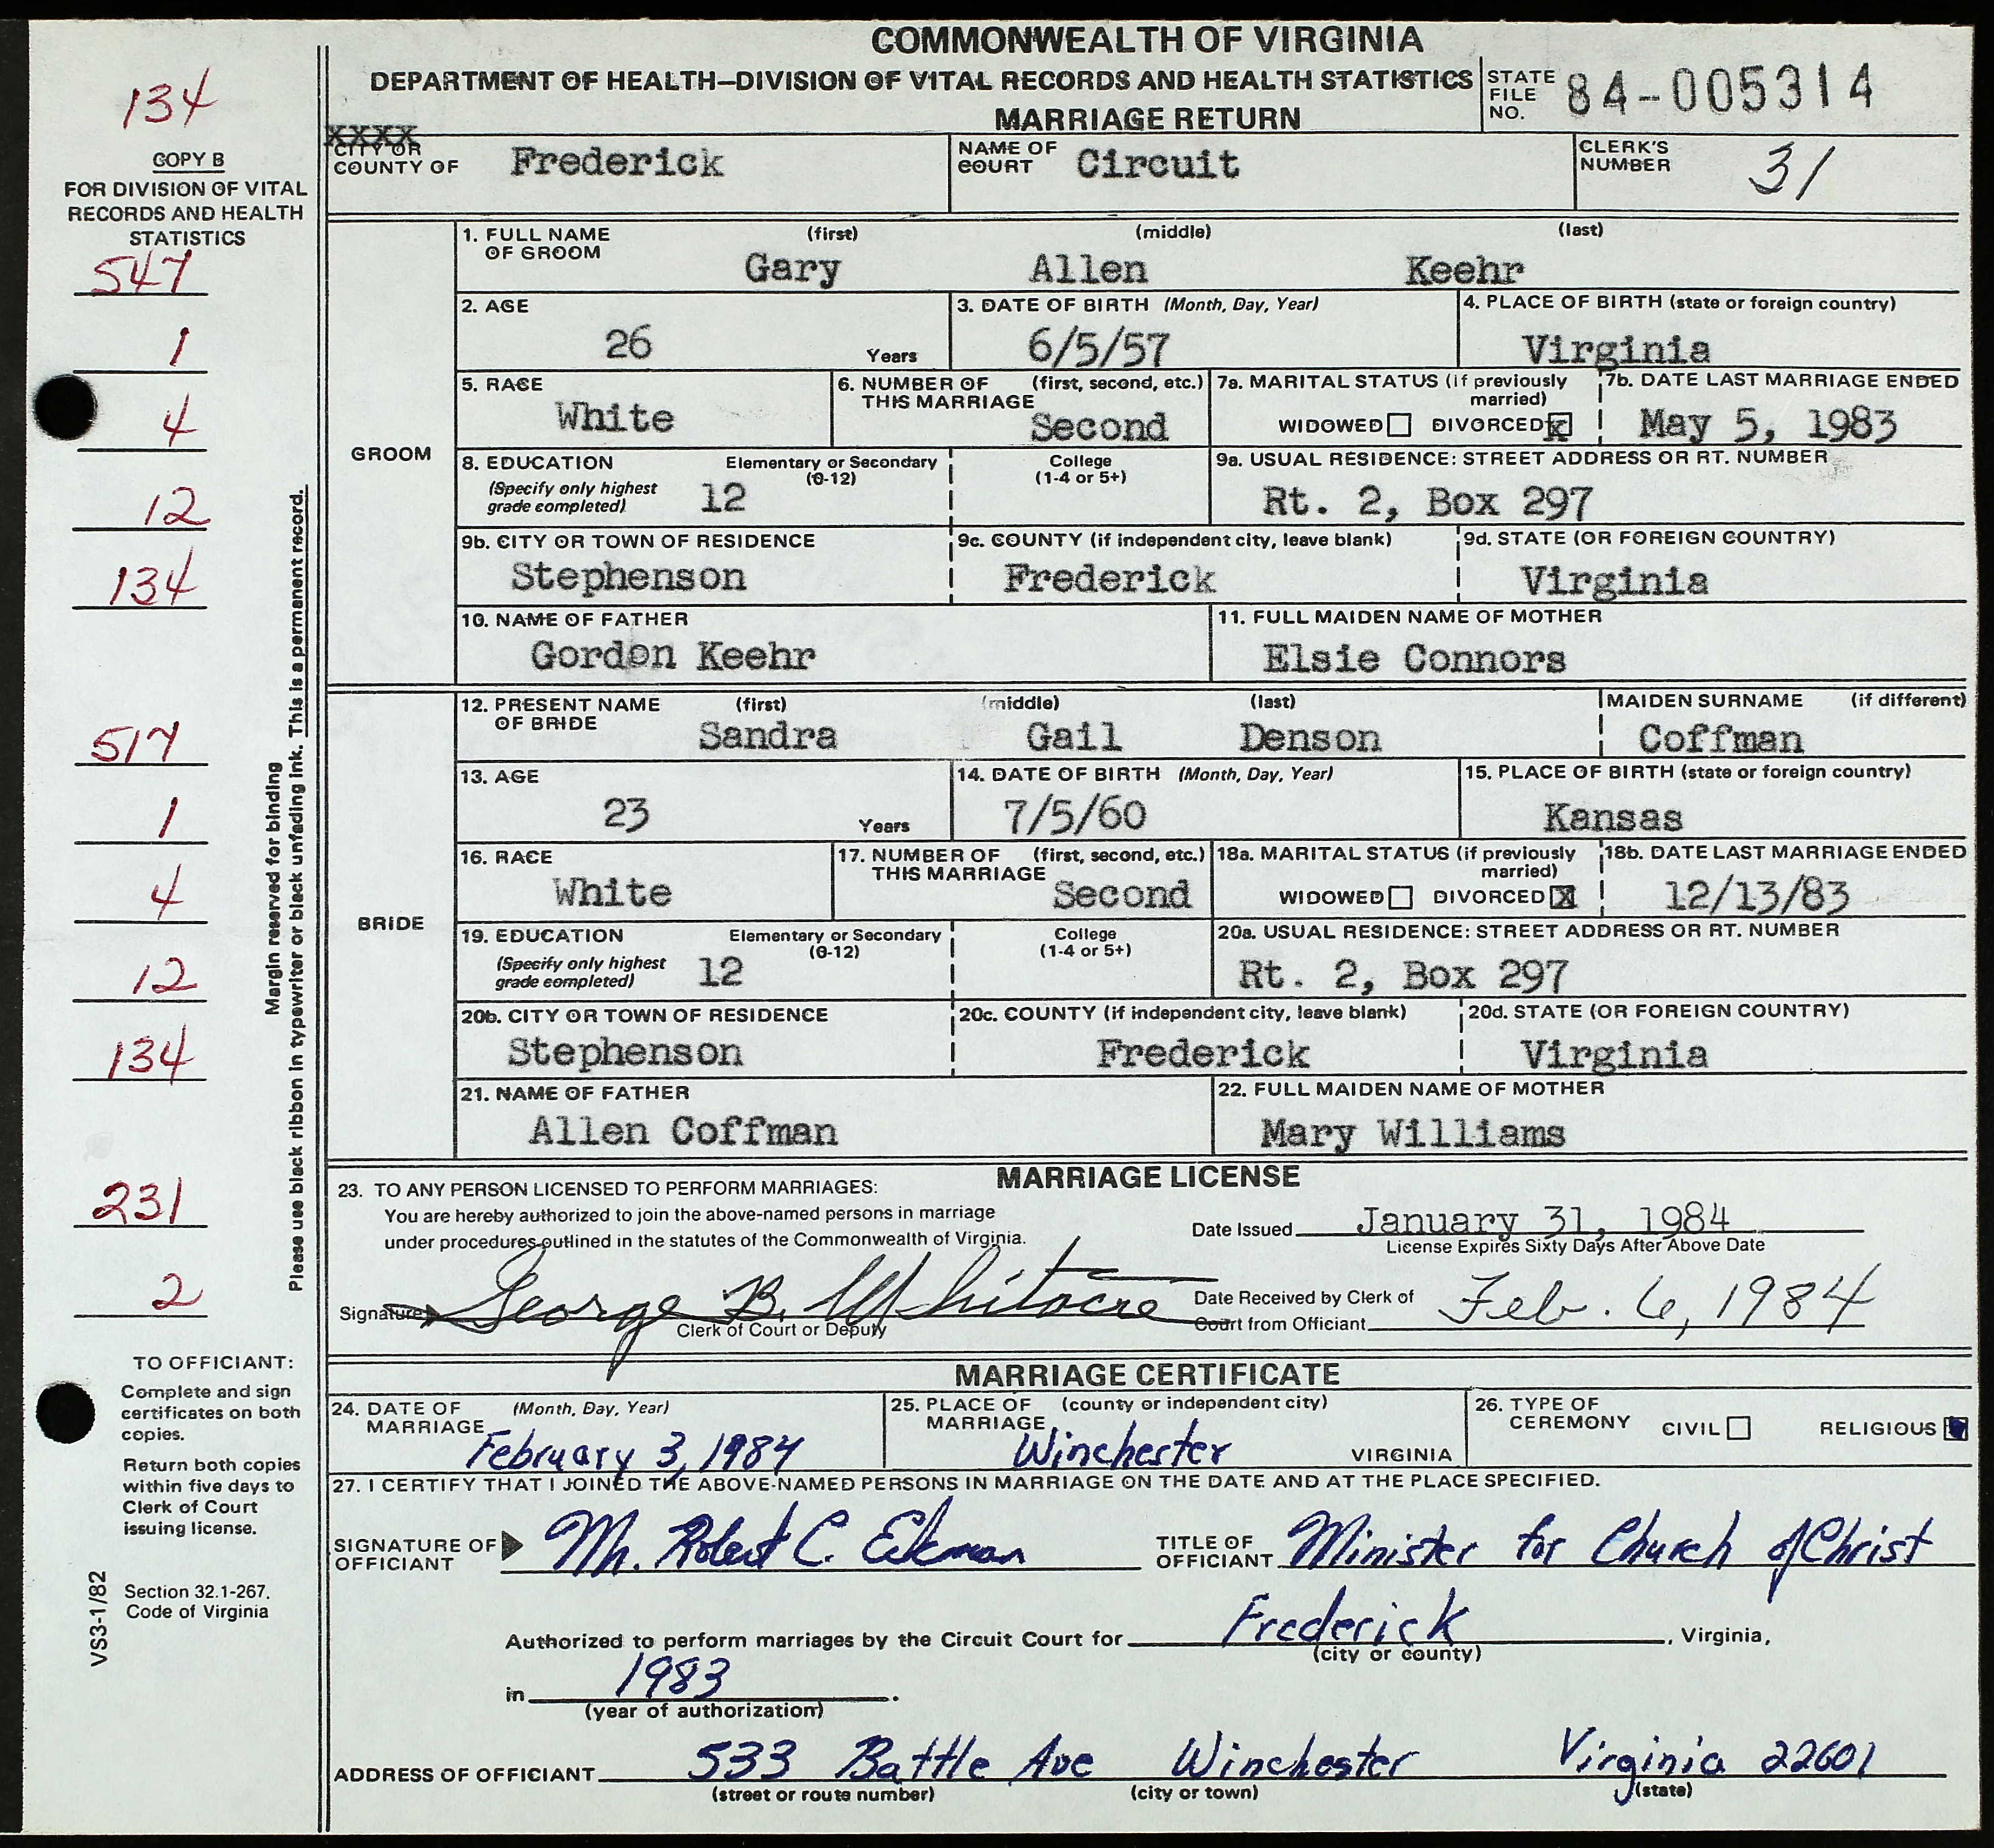 COMMONWEALTH OF VIRGINIA
DEPARTMENT OF HEALTH—DIVISION OF VITAL RECORDS AND HEALTH STATISTICS
MARRIAGE RETURN
STATE FILE NO. 84-005314
134
COPY B
FOR DIVISION OF VITAL
RECORDS AND HEALTH
STATISTICS
547
1
4
12
134
517
1
4
12
134
231
2
Margin reserved for binding
Please use black ribbon in typewriter or black unfading ink. This is a permanent record.
TO OFFICIANT:
Complete and sign
certificates on both
copies.
Return both copies
within five days to
Clerk of Court
issuing license.
Section 32.1-267,
Code of Virginia
VS3-1/82
XXXX
CITY OR COUNTY OF Frederick
NAME OF COURT Circuit
CLERK'S NUMBER 31
GROOM
1. FULL NAME OF GROOM (first) (middle) (last)
Gary Allen Keehr
2. AGE 26 Years
3. DATE OF BIRTH (Month, Day, Year) 6/5/57
4. PLACE OF BIRTH (state or foreign country) Virginia
5. RACE White
6. NUMBER OF THIS MARRIAGE (first, second, etc.) Second
7a. MARITAL STATUS (if previously married) WIDOWED DIVORCED x
7b. DATE LAST MARRIAGE ENDED May 5, 1983
8. EDUCATION (Specify only highest grade completed) Elementary or Secondary (0-12) 12 College (1-4 or 5+)
9a. USUAL RESIDENCE: STREET ADDRESS OR RT. NUMBER Rt. 2, Box 297
9b. CITY OR TOWN OF RESIDENCE Stephenson
9c. COUNTY (if independent city, leave blank) Frederick
9d. STATE (OR FOREIGN COUNTRY) Virginia
10. NAME OF FATHER Gordon Keehr
11. FULL MAIDEN NAME OF MOTHER Elsie Connors
BRIDE
12. PRESENT NAME OF BRIDE (first) (middle) (last) MAIDEN SURNAME (if different)
Sandra Gail Denson Coffman
13. AGE 23 Years
14. DATE OF BIRTH (Month, Day, Year) 7/5/60
15. PLACE OF BIRTH (state or foreign country) Kansas
16. RACE White
17. NUMBER OF THIS MARRIAGE (first, second, etc.) Second
18a. MARITAL STATUS (if previously married) WIDOWED DIVORCED X
18b. DATE LAST MARRIAGE ENDED 12/13/83
19. EDUCATION (Specify only highest grade completed) Elementary or Secondary (0-12) 12 College (1-4 or 5+)
20a. USUAL RESIDENCE: STREET ADDRESS OR RT. NUMBER Rt. 2, Box 297
20b. CITY OR TOWN OF RESIDENCE Stephenson
20c. COUNTY (if independent city, leave blank) Frederick
20d. STATE (OR FOREIGN COUNTRY) Virginia
21. NAME OF FATHER Allen Coffman
22. FULL MAIDEN NAME OF MOTHER Mary Williams
MARRIAGE LICENSE
23. TO ANY PERSON LICENSED TO PERFORM MARRIAGES:
You are hereby authorized to join the above-named persons in marriage
under procedures outlined in the statutes of the Commonwealth of Virginia.
Date Issued January 31, 1984
License Expires Sixty Days After Above Date
Signature George B. Whitacre
Clerk of Court or Deputy
Date Received by Clerk of Court from Officiant Feb. 6, 1984
MARRIAGE CERTIFICATE
24. DATE OF MARRIAGE (Month, Day, Year) February 3, 1984
25. PLACE OF MARRIAGE (county or independent city) Winchester VIRGINIA
26. TYPE OF CEREMONY CIVIL RELIGIOUS
27. I CERTIFY THAT I JOINED THE ABOVE-NAMED PERSONS IN MARRIAGE ON THE DATE AND AT THE PLACE SPECIFIED.
SIGNATURE OF OFFICIANT Mr. Robert C. Eckman
TITLE OF OFFICIANT Minister for Church of Christ
Authorized to perform marriages by the Circuit Court for Frederick, Virginia,
(city or county)
in 1983.
(year of authorization)
ADDRESS OF OFFICIANT 533 Battle Ave Winchester Virginia 22601
(street or route number) (city or town) (state)